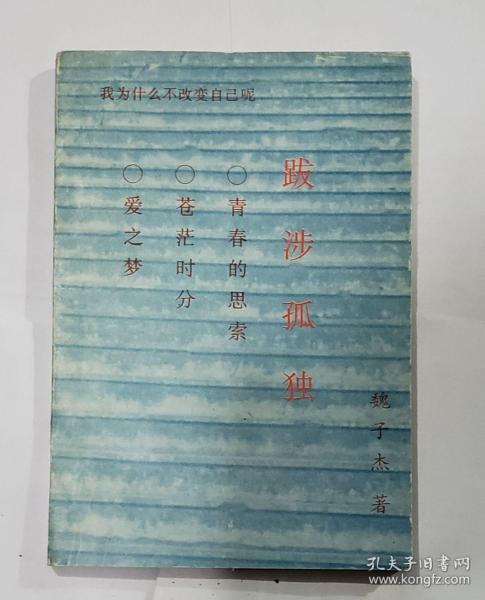 我为什么不改变自己呢
跋涉孤独
○青春的思索
○苍茫时分
○爱之梦
魏子杰 著
孔夫子旧书网
www.kongfz.com